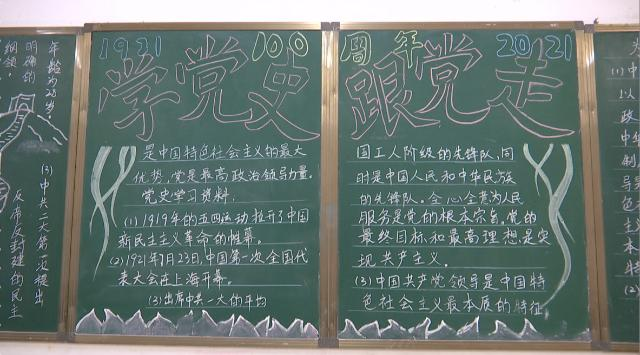 年龄为28岁。
明确的
纲领，
(3)中共二大第一次提出
反帝反封建的民主
1921 100周年 2021
学党史 跟党走
是中国特色社会主义的最大
优势，党是最高政治领导力量。
党史学习资料.
(1)1919年的五四运动拉开了中国
新民主主义革命的帷幕。
(2)1921年7月23日,中国第一次全国代
表大会在上海开幕。
(3)出席中共一大的平均
国工人阶级的先锋队,同
时是中国人民和中华民族
的先锋队。全心全意为人民
服务是党的根本宗旨，党的
最终目标和最高理想是实
现共产主义。
(3)中国共产党领导是中国特
色社会主义最本质的特征
(1)中
以
政
中
制
导
色
主
本
(2)